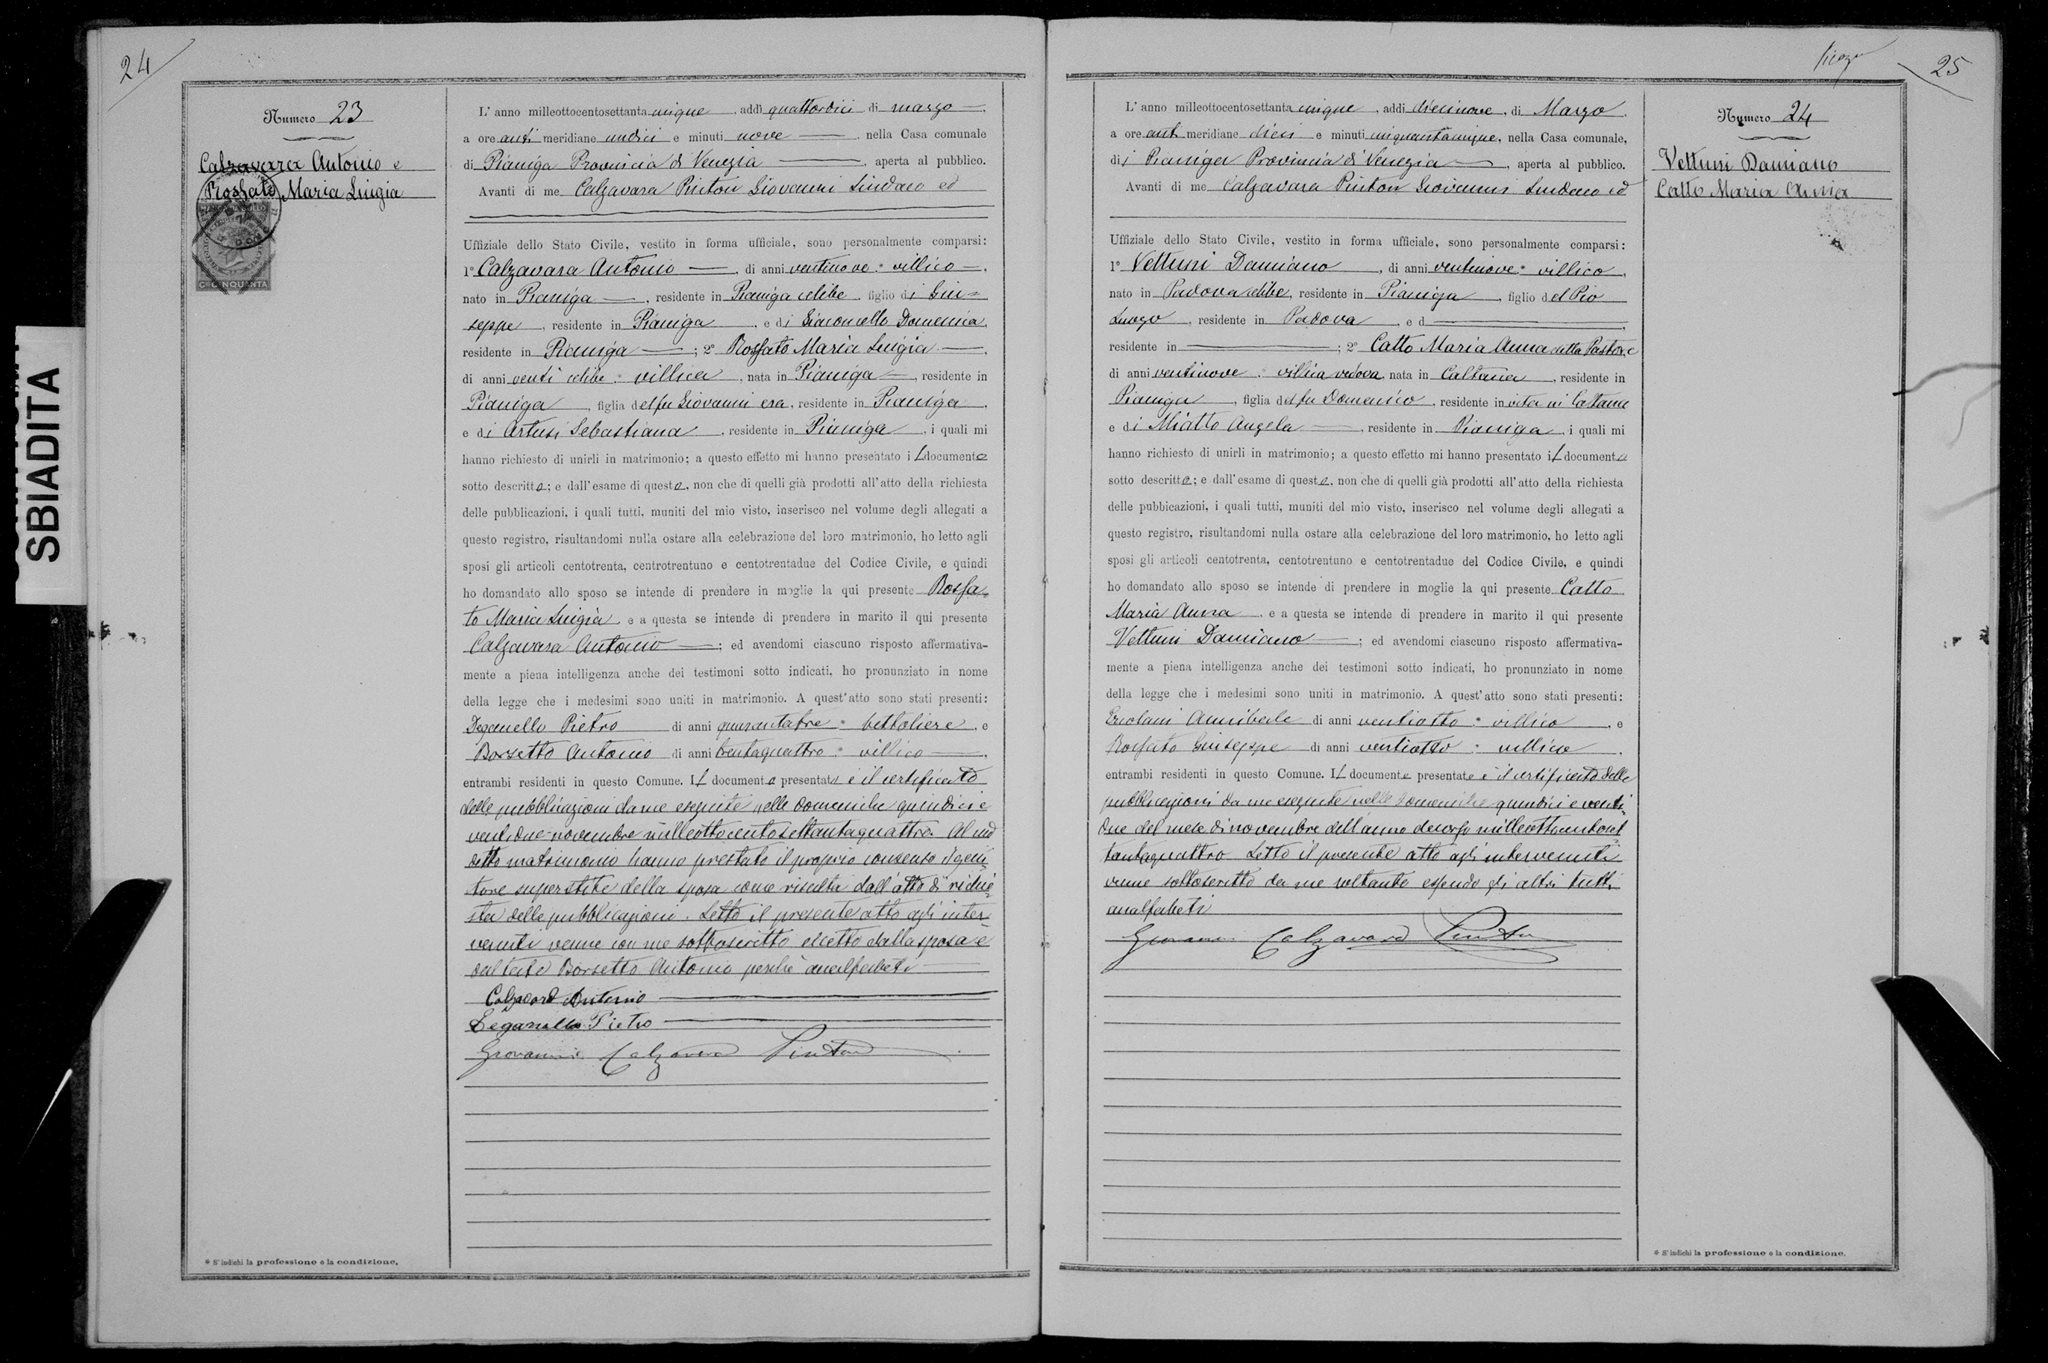 24
Numero 23
Calzavara Antonio e
Rossato Maria Luigia
CI CINQUANTA
L'anno milleottocentosettanta cinque, addì quattordici di marzo
a ore anti meridiane undici e minuti nove, nella Casa comunale
di Pianiga Provincia di Venezia, aperta al pubblico.
Avanti di me Calzavara Pinton Giovanni Sindaco ed
Uffiziale dello Stato Civile, vestito in forma ufficiale, sono personalmente comparsi:
1° Calzavara Antonio, di anni ventinove * villico,
nato in Pianiga, residente in Pianiga celibe figlio di Giu-
seppe, residente in Pianiga, e di Giacomello Domenica,
residente in Pianiga; 2° Rossato Maria Luigia,
di anni venti celibe * villica, nata in Pianiga, residente in
Pianiga, figlia del fu Giovanni era, residente in Pianiga
e di Artusi Sebastiana, residente in Pianiga, i quali mi
hanno richiesto di unirli in matrimonio; a questo effetto mi hanno presentato il documento
sotto descritto; e dall'esame di questo, non che di quelli già prodotti all'atto della richiesta
delle pubblicazioni, i quali tutti, muniti del mio visto, inserisco nel volume degli allegati a
questo registro, risultandomi nulla ostare alla celebrazione del loro matrimonio, ho letto agli
sposi gli articoli centotrenta, centrotrentuno e centotrentadue del Codice Civile, e quindi
ho domandato allo sposo se intende di prendere in moglie la qui presente Rossa-
to Maria Luigia e a questa se intende di prendere in marito il qui presente
Calzavara Antonio; ed avendomi ciascuno risposto affermativa-
mente a piena intelligenza anche dei testimoni sotto indicati, ho pronunziato in nome
della legge che i medesimi sono uniti in matrimonio. A quest'atto sono stati presenti:
Deganello Pietro di anni quarantatre * bettoliere, e
Borsetto Antonio di anni trentaquattro * villico,
entrambi residenti in questo Comune. Il documento presentato è il certificato
delle pubblicazioni da me eseguite nelle domeniche quindici e
ventidue novembre milleottocentosettantaquattro. Al sud
detto matrimonio hanno prestato il proprio consenso il geni-
tore superstite della sposa come risulta dall'atto di richie-
sta delle pubblicazioni. Letto il presente atto agli inter-
venuti venne con me sottoscritto eccetto dalla sposa e
dal teste Borsetto Antonio perchè analfabeti
Calzavara Antonio
Deganello Pietro
Giovanni Calzavara Pinton
* S'indichi la professione o la condizione.
25
Numero 24
Vettuni Damiano
Catto Maria Anna
L'anno milleottocentosettanta cinque, addì diecinove, di Marzo
a ore anti meridiane dieci e minuti cinquantacinque, nella Casa comunale,
di Pianiga Provincia di Venezia, aperta al pubblico.
Avanti di me Calzavara Pinton Giovanni Sindaco ed
Uffiziale dello Stato Civile, vestito in forma ufficiale, sono personalmente comparsi:
1° Vettuni Damiano, di anni ventinove * villico,
nato in Padova celibe, residente in Pianiga, figlio del Pio
Luogo, residente in Padova, e d
residente in ; 2° Catto Maria Anna detta Pastore
di anni ventinove * villica vedova, nata in Caltana, residente in
Pianiga, figlia del fu Domenico, residente in vita in Caltana
e di Miatto Angela, residente in Pianiga, i quali mi
hanno richiesto di unirli in matrimonio; a questo effetto mi hanno presentato il documento
sotto descritto; e dall'esame di questo, non che di quelli già prodotti all'atto della richiesta
delle pubblicazioni, i quali tutti, muniti del mio visto, inserisco nel volume degli allegati a
questo registro, risultandomi nulla ostare alla celebrazione del loro matrimonio, ho letto agli
sposi gli articoli centotrenta, centotrentuno e centotrentadue del Codice Civile, e quindi
ho domandato allo sposo se intende di prendere in moglie la qui presente Catto
Maria Anna e a questa se intende di prendere in marito il qui presente
Vettuni Damiano; ed avendomi ciascuno risposto affermativa-
mente a piena intelligenza anche dei testimoni sotto indicati, ho pronunziato in nome
della legge che i medesimi sono uniti in matrimonio. A quest'atto sono stati presenti:
Ercolani Annibale di anni ventiotto * villico, e
Rossato Giuseppe di anni ventiotto * villico
entrambi residenti in questo Comune. Il documento presentato è il certificato delle
pubblicazioni da me eseguite nelle domeniche quindici e venti
due del mese di novembre dell'anno decorso milleottocentoset
tantaquattro. Letto il presente atto agli intervenuti
venne sottoscritto da me soltanto essendo gli altri tutti
analfabeti
Giovanni Calzavara Pinton
* S'indichi la professione o la condizione.
SBIADITA